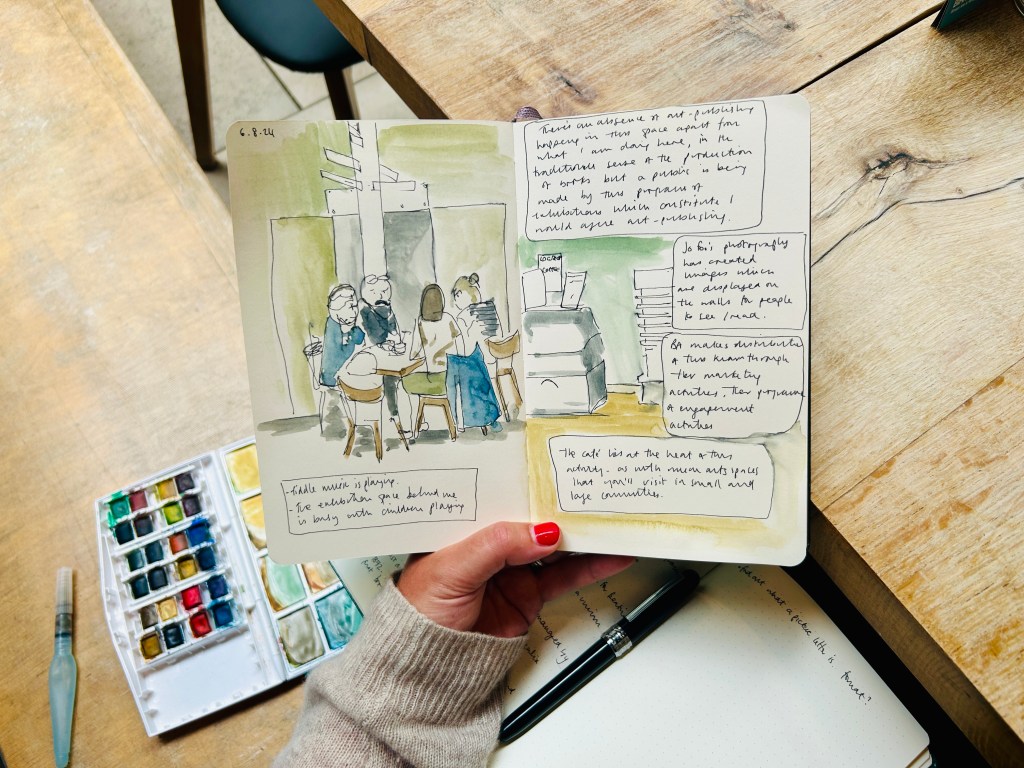 6.8.24
- Fiddle music is playing.
- The exhibition space behind me
is busy with children playing
There's an absence of art-publishing
happening in this space apart from
what I am doing here, in the
traditional sense of the production
of books but a public is being
made by this programme of
exhibitions which constitute I
would argue art-publishing.
COFFEE
Jo Fox's photography
has created
images which
are displayed on
the walls for people
to see / read.
makes distribute
this team through
their marketing
activities, their programme
& engagement
activities
The café lies at the heart of this
activity - as with many arts spaces
that you'll visit in small and
large communities.
what a picture letter is. format?